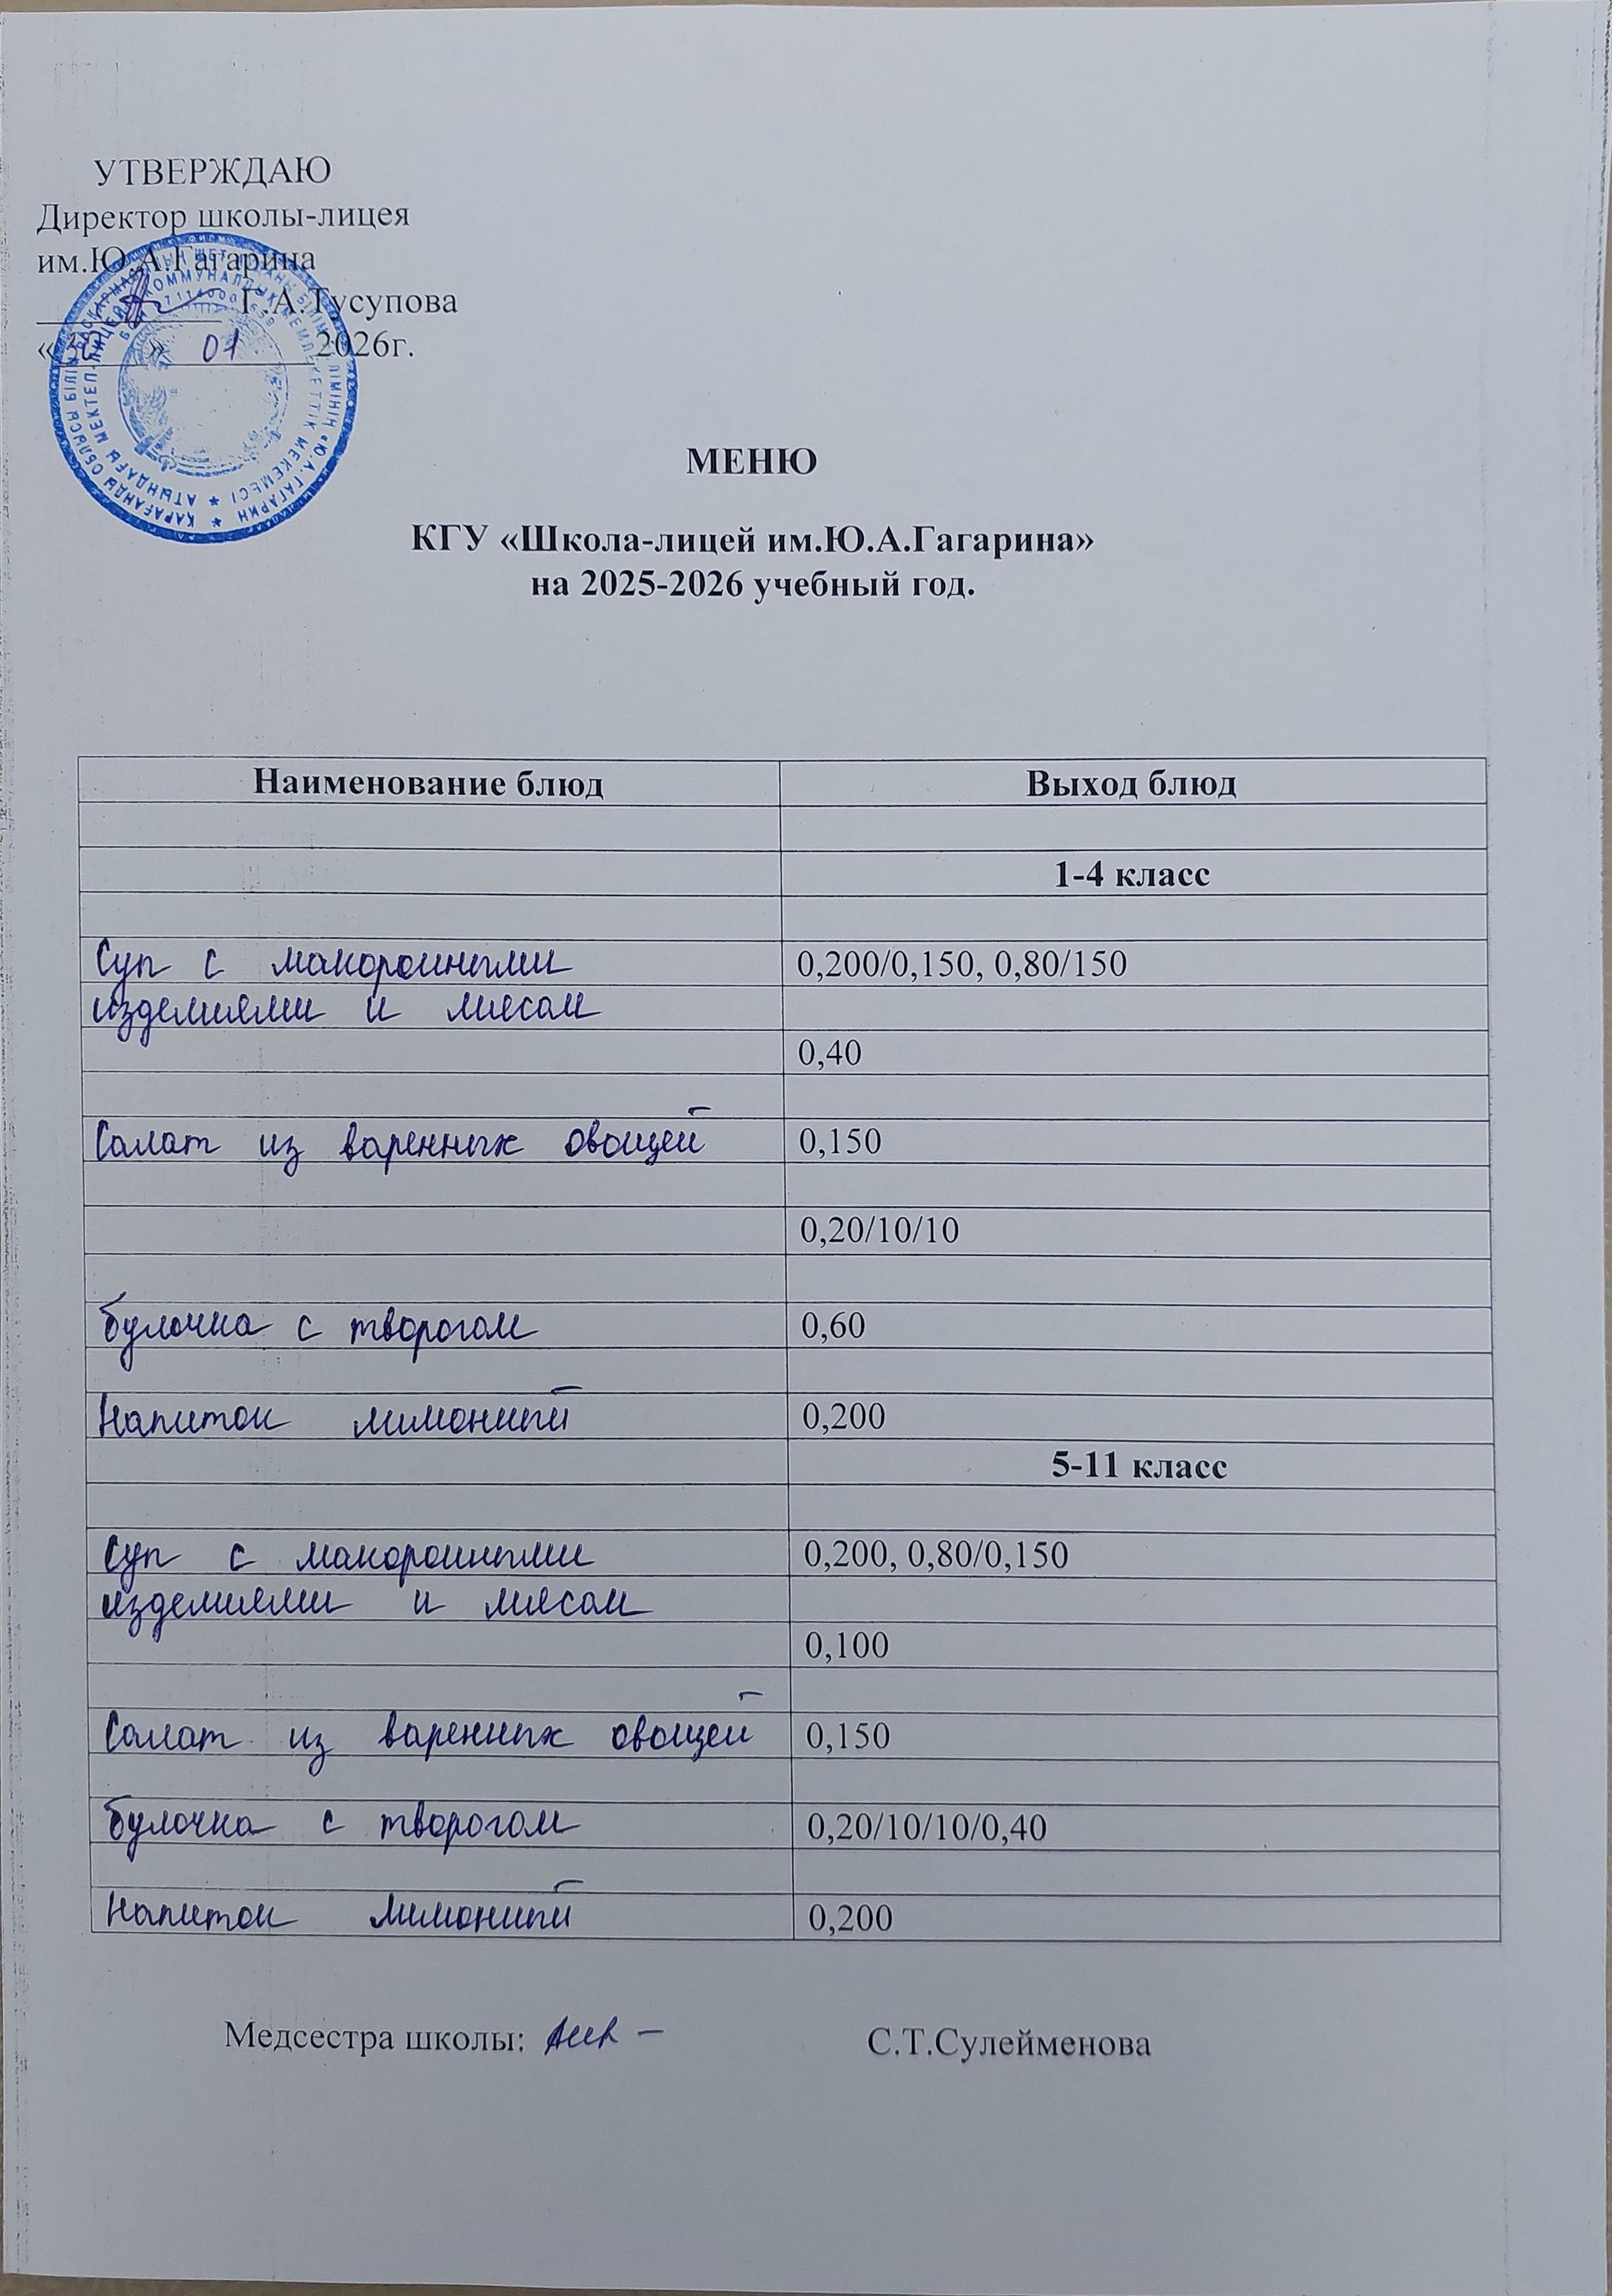 УТВЕРЖДАЮ
Директор школы-лицея
им.Ю.А.Гагарина
Г.А.Тусупова
«30» 01 2026г.
МЕНЮ
КГУ «Школа-лицей им.Ю.А.Гагарина»
на 2025-2026 учебный год.
Наименование блюд Выход блюд
1-4 класс
Суп с макоронными 0,200/0,150, 0,80/150
изделиями и мясом
0,40
Салат из варенных овощей 0,150
0,20/10/10
булочка с творогом 0,60
Напиток лимонный 0,200
5-11 класс
Суп с макоронными 0,200, 0,80/0,150
изделиями и мясом
0,100
Салат из варенных овощей 0,150
булочка с творогом 0,20/10/10/0,40
Напиток лимонный 0,200
Медсестра школы: С.Т.Сулейменова